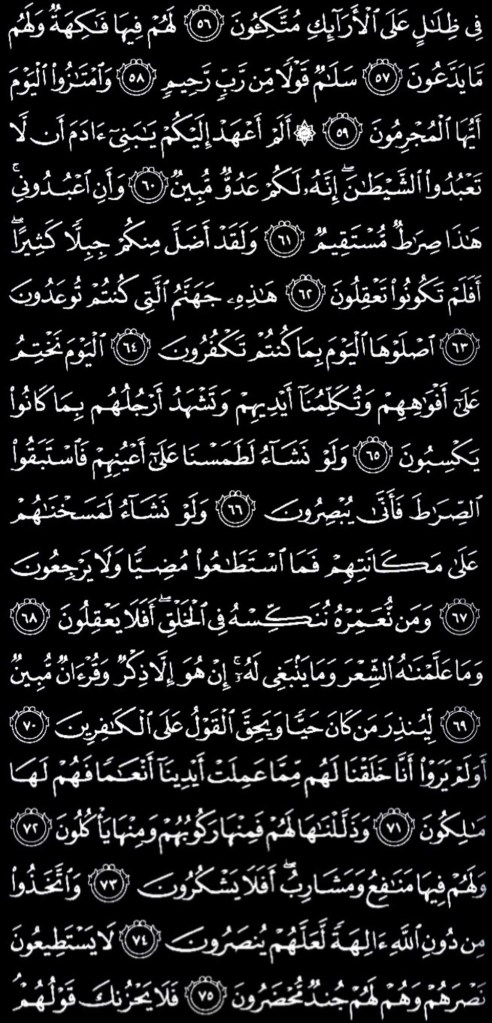 فِى ظِلَـٰلٍ عَلَى ٱلْأَرَآئِكِ مُتَّكِـُٔونَ ۝٥٦ لَهُمْ فِيهَا فَـٰكِهَةٌ وَلَهُم
مَّا يَدَّعُونَ ۝٥٧ سَلَـٰمٌ قَوْلًا مِّن رَّبٍّ رَّحِيمٍ ۝٥٨ وَٱمْتَـٰزُوا۟ ٱلْيَوْمَ
أَيُّهَا ٱلْمُجْرِمُونَ ۝٥٩ ۞ أَلَمْ أَعْهَدْ إِلَيْكُمْ يَـٰبَنِىٓ ءَادَمَ أَن لَّا
تَعْبُدُوا۟ ٱلشَّيْطَـٰنَ ۖ إِنَّهُۥ لَكُمْ عَدُوٌّ مُّبِينٌ ۝٦٠ وَأَنِ ٱعْبُدُونِى ۚ
هَـٰذَا صِرَٰطٌ مُّسْتَقِيمٌ ۝٦١ وَلَقَدْ أَضَلَّ مِنكُمْ جِبِلًّا كَثِيرًا ۖ
أَفَلَمْ تَكُونُوا۟ تَعْقِلُونَ ۝٦٢ هَـٰذِهِۦ جَهَنَّمُ ٱلَّتِى كُنتُمْ تُوعَدُونَ
۝٦٣ ٱصْلَوْهَا ٱلْيَوْمَ بِمَا كُنتُمْ تَكْفُرُونَ ۝٦٤ ٱلْيَوْمَ نَخْتِمُ
عَلَىٰٓ أَفْوَٰهِهِمْ وَتُكَلِّمُنَآ أَيْدِيهِمْ وَتَشْهَدُ أَرْجُلُهُم بِمَا كَانُوا۟
يَكْسِبُونَ ۝٦٥ وَلَوْ نَشَآءُ لَطَمَسْنَا عَلَىٰٓ أَعْيُنِهِمْ فَٱسْتَبَقُوا۟
ٱلصِّرَٰطَ فَأَنَّىٰ يُبْصِرُونَ ۝٦٦ وَلَوْ نَشَآءُ لَمَسَخْنَـٰهُمْ
عَلَىٰ مَكَانَتِهِمْ فَمَا ٱسْتَطَـٰعُوا۟ مُضِيًّا وَلَا يَرْجِعُونَ
۝٦٧ وَمَن نُّعَمِّرْهُ نُنَكِّسْهُ فِى ٱلْخَلْقِ ۖ أَفَلَا يَعْقِلُونَ ۝٦٨
وَمَا عَلَّمْنَـٰهُ ٱلشِّعْرَ وَمَا يَنۢبَغِى لَهُۥٓ ۚ إِنْ هُوَ إِلَّا ذِكْرٌ وَقُرْءَانٌ مُّبِينٌ
۝٦٩ لِّيُنذِرَ مَن كَانَ حَيًّا وَيَحِقَّ ٱلْقَوْلُ عَلَى ٱلْكَـٰفِرِينَ ۝٧٠
أَوَلَمْ يَرَوْا۟ أَنَّا خَلَقْنَا لَهُم مِّمَّا عَمِلَتْ أَيْدِينَآ أَنْعَـٰمًا فَهُمْ لَهَا
مَـٰلِكُونَ ۝٧١ وَذَلَّلْنَـٰهَا لَهُمْ فَمِنْهَا رَكُوبُهُمْ وَمِنْهَا يَأْكُلُونَ ۝٧٢
وَلَهُمْ فِيهَا مَنَـٰفِعُ وَمَشَارِبُ ۖ أَفَلَا يَشْكُرُونَ ۝٧٣ وَٱتَّخَذُوا۟
مِن دُونِ ٱللَّهِ ءَالِهَةً لَّعَلَّهُمْ يُنصَرُونَ ۝٧٤ لَا يَسْتَطِيعُونَ
نَصْرَهُمْ وَهُمْ لَهُمْ جُندٌ مُّحْضَرُونَ ۝٧٥ فَلَا يَحْزُنكَ قَوْلُهُمْ